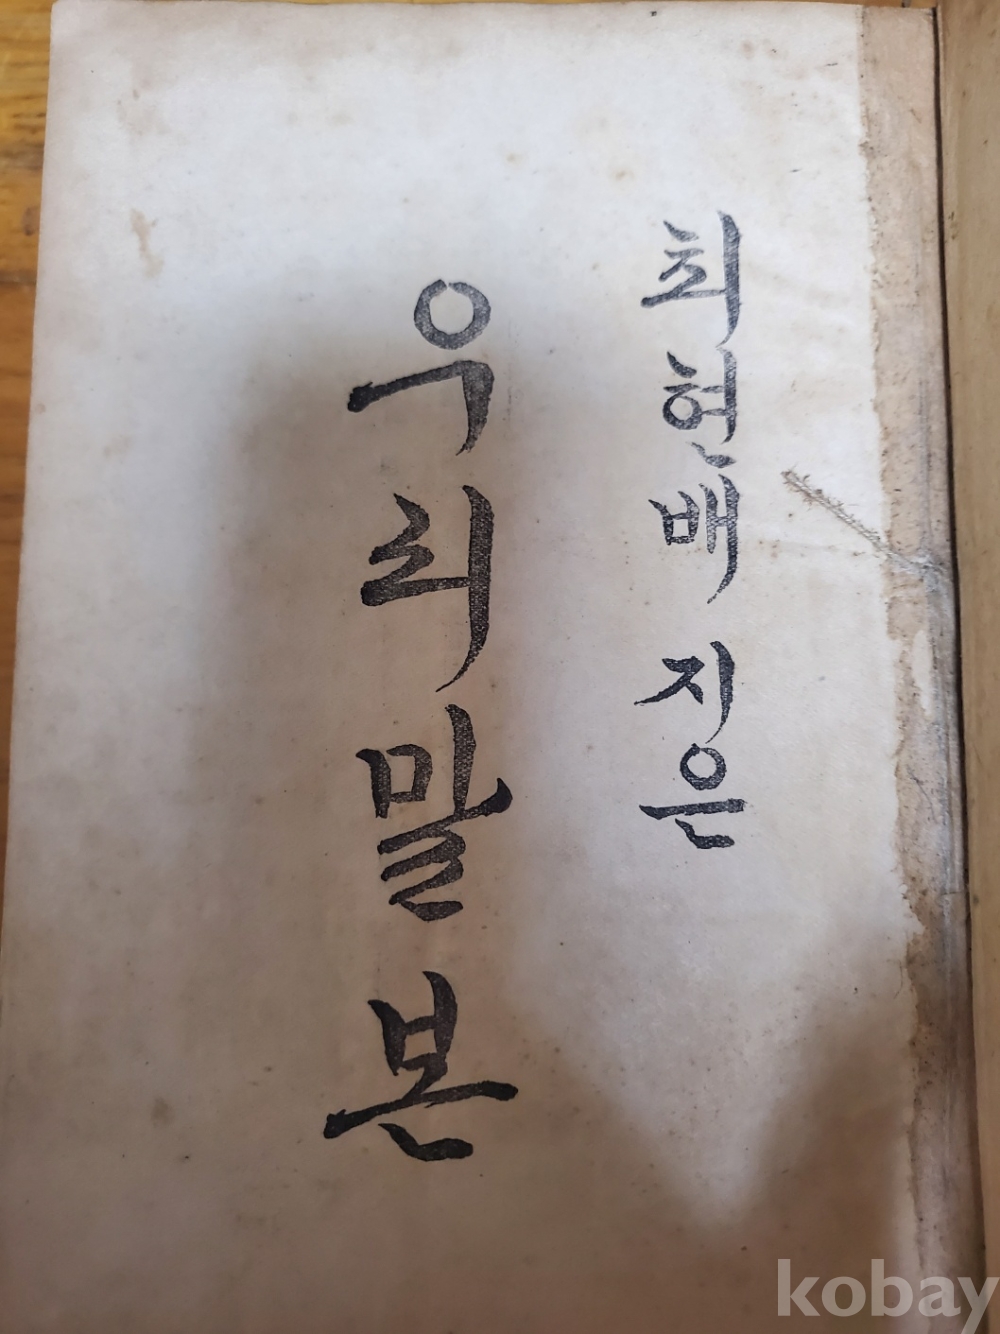 최현배 지은
우리말본
kobay